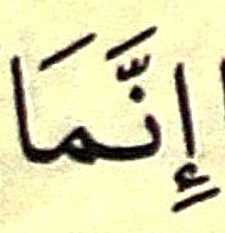 إِنَّمَا